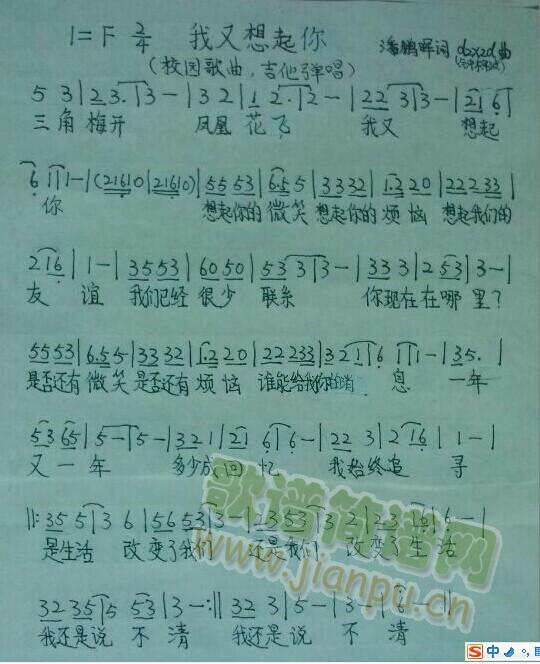 1=F 2/4 我又想起你 潘鹏晖词 曲
(校园歌曲,吉他弹唱)
5 3|2 3.|3-|3 2|1 2.|2-|22 3|3-|21 6|
三角梅开 凤凰花飞 我又 想起
6 1|1-|(21610|21610)|55 53|6.5 5|33 32|1.2 20|222 33|
你 想起你的微笑 想起你的烦恼 想起我们的
2 16|1-|35 53|60 50|53 3|3-|33 3|2 53|3-|
友谊 我们已经 很少 联系 你现在在哪里?
55 53|6.5 5|33 32|1.2 20|22 233|3 21|6 1|1-|35.|
是否还有微笑 是否还有烦恼 谁能给我你的消息 一年
53 65|5-|5-|32 1|21 6|6-|22 3|2 16|1-|
又一年 多少成回忆 我始终追寻
||:35 5|3 6|56 53|3-|23 53|3 2|23 16|6-|
是生活 改变了我们 还是我们 改变了生活
32 35|5 53|3-:|| 32 3|5-|3-|6-||
我还是说 不清 我还是说 不清
歌谱简谱网
www.jianpu.cn
中